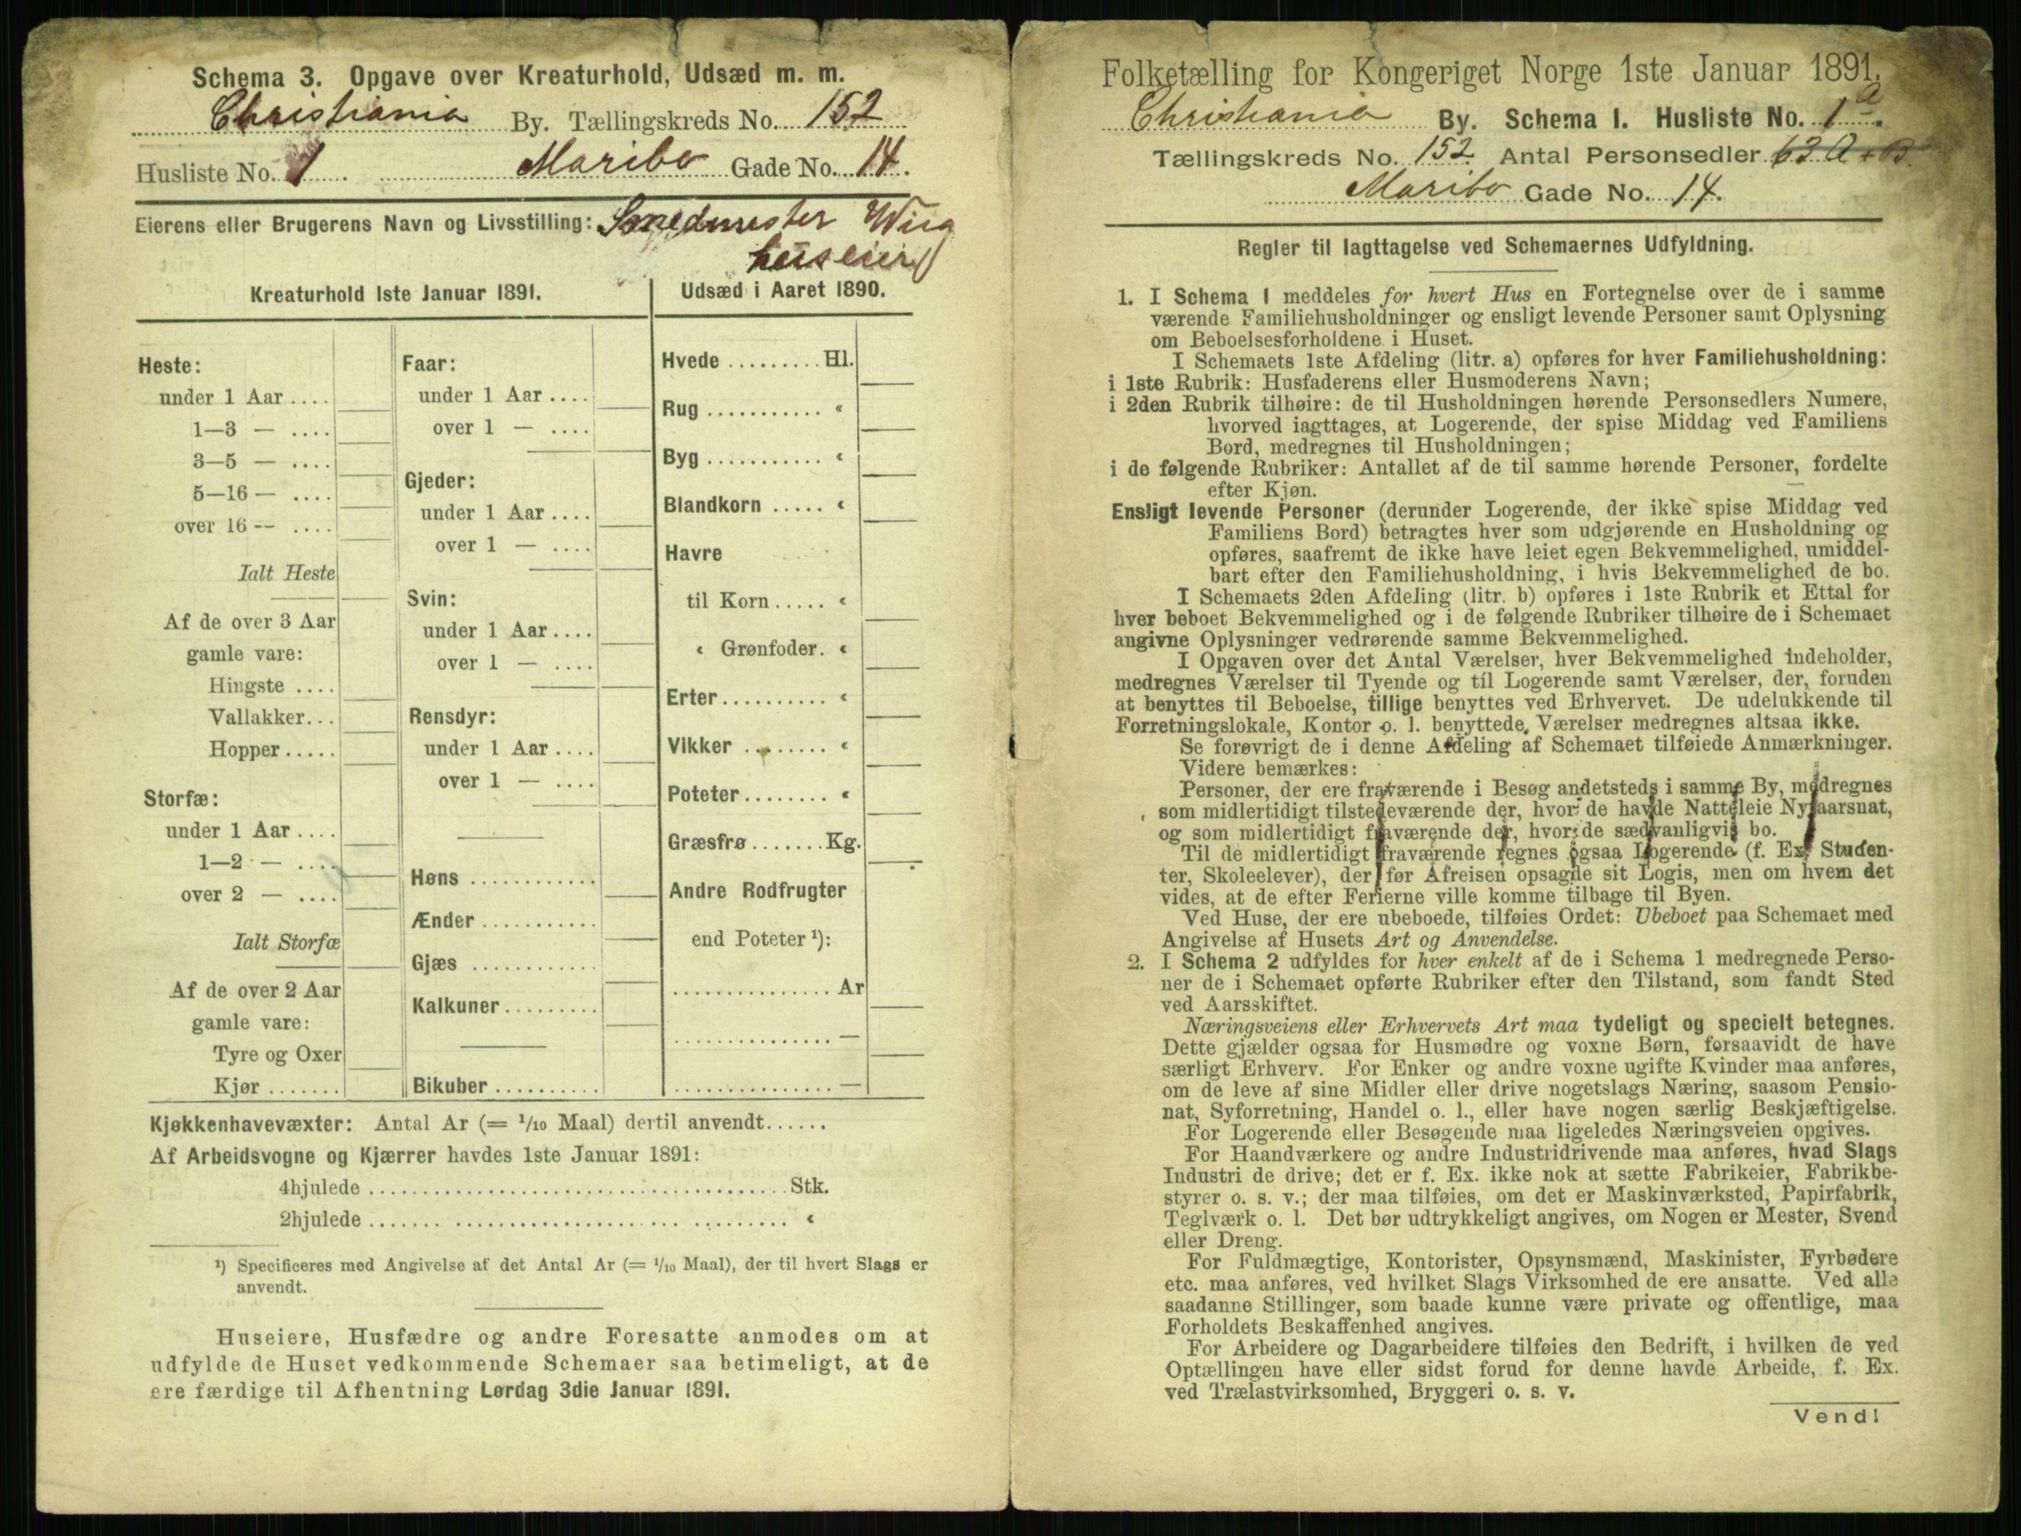 Schema 3. Opgave over Kreaturhold, Udsæd m. m.
Christiania By. Tællingskreds No. 152
Husliste No. 1. Maribo Gade No. 14.
Eierens eller Brugerens Navn og Livsstilling: Smedmester Wiig
huseier
Kreaturhold 1ste Januar 1891.
Heste:
under 1 Aar ....
1—3 — ....
3—5 — ....
5—16 — ....
over 16 — ....
Ialt Heste
Af de over 3 Aar
gamle vare:
Hingste ....
Vallakker...
Hopper .....
Storfæ:
under 1 Aar ....
1—2 — ....
over 2 — ....
Ialt Storfæ
Af de over 2 Aar
gamle vare:
Tyre og Oxer
Kjør .......
Faar:
under 1 Aar ....
over 1 — ....
Gjeder:
under 1 Aar ....
over 1 — ....
Svin:
under 1 Aar ....
over 1 — ....
Rensdyr:
under 1 Aar ....
over 1 — ....
Høns ............
Ænder ...........
Gjæs ............
Kalkuner .........
Bikuber ..........
Udsæd i Aaret 1890.
Hvede ......... Hl.
Rug ........... «
Byg ........... «
Blandkorn ..... «
Havre
til Korn ..... «
« Grønfoder. «
Erter .......... «
Vikker ........ «
Poteter ........ «
Græsfrø ....... Kg.
Andre Rodfrugter
end Poteter ¹):
............... Ar
............... —
............... —
Kjøkkenhavevæxter: Antal Ar (= 1/10 Maal) dertil anvendt......
Af Arbeidsvogne og Kjærrer havdes 1ste Januar 1891:
4hjulede ........................................ Stk.
2hjulede ........................................ «
¹) Specificeres med Angivelse af det Antal Ar (= 1/10 Maal), der til hvert Slags er
anvendt.
Huseiere, Husfædre og andre Foresatte anmodes om at
udfylde de Huset vedkommende Schemaer saa betimeligt, at de
ere færdige til Afhentning Lørdag 3die Januar 1891.
Folketælling for Kongeriget Norge 1ste Januar 1891.
Christiania By. Schema 1. Husliste No. 1a.
Tællingskreds No. 152 Antal Personsedler 63 A + B.
Maribo Gade No. 14.
Regler til Iagttagelse ved Schemaernes Udfyldning.
1. I Schema 1 meddeles for hvert Hus en Fortegnelse over de i samme
værende Familiehusholdninger og ensligt levende Personer samt Oplysning
om Beboelsesforholdene i Huset.
I Schemaets 1ste Afdeling (litr. a) opføres for hver Familiehusholdning:
i 1ste Rubrik: Husfaderens eller Husmoderens Navn;
i 2den Rubrik tilhøire: de til Husholdningen hørende Personsedlers Numere,
hvorved iagttages, at Logerende, der spise Middag ved Familiens
Bord, medregnes til Husholdningen;
i de følgende Rubriker: Antallet af de til samme hørende Personer, fordelte
efter Kjøn.
Ensligt levende Personer (derunder Logerende, der ikke spise Middag ved
Familiens Bord) betragtes hver som udgjørende en Husholdning og
opføres, saafremt de ikke have leiet egen Bekvemmelighed, umiddel-
bart efter den Familiehusholdning, i hvis Bekvemmelighed de bo.
I Schemaets 2den Afdeling (litr. b) opføres i 1ste Rubrik et Ettal for
hver beboet Bekvemmelighed og i de følgende Rubriker tilhøire de i Schemaet
angivne Oplysninger vedrørende samme Bekvemmelighed.
I Opgaven over det Antal Værelser, hver Bekvemmelighed indeholder,
medregnes Værelser til Tyende og til Logerende samt Værelser, der, foruden
at benyttes til Beboelse, tillige benyttes ved Erhvervet. De udelukkende til
Forretningslokale, Kontor o. l. benyttede Værelser medregnes altsaa ikke.
Se forøvrigt de i denne Afdeling af Schemaet tilføiede Anmærkninger.
Videre bemærkes:
Personer, der ere fraværende i Besøg andetsteds i samme By, medregnes
som midlertidigt tilstedeværende der, hvor de havde Natteleie Nytaarsnat,
og som midlertidigt fraværende der, hvor de sædvanligvis bo.
Til de midlertidigt fraværende regnes ogsaa Logerende (f. Ex. Studen-
ter, Skoleelever), der før Afreisen opsagde sit Logis, men om hvem det
vides, at de efter Ferierne ville komme tilbage til Byen.
Ved Huse, der ere ubeboede, tilføies Ordet: Ubeboet paa Schemaet med
Angivelse af Husets Art og Anvendelse.
2. I Schema 2 udfyldes for hver enkelt af de i Schema 1 medregnede Perso-
ner de i Schemaet opførte Rubriker efter den Tilstand, som fandt Sted
ved Aarsskiftet.
Næringsveiens eller Erhvervets Art maa tydeligt og specielt betegnes.
Dette gjælder ogsaa for Husmødre og voxne Børn, forsaavidt de have
særligt Erhverv. For Enker og andre voxne ugifte Kvinder maa anføres,
om de leve af sine Midler eller drive nogetslags Næring, saasom Pensio-
nat, Syforretning, Handel o. l., eller have nogen særlig Beskjæftigelse.
For Logerende eller Besøgende maa ligeledes Næringsveien opgives.
For Haandværkere og andre Industridrivende maa anføres, hvad Slags
Industri de drive; det er f. Ex. ikke nok at sætte Fabrikeier, Fabrikbe-
styrer o. s. v.; der maa tilføies, om det er Maskinværksted, Papirfabrik,
Teglværk o. l. Det bør udtrykkeligt angives, om Nogen er Mester, Svend
eller Dreng.
For Fuldmægtige, Kontorister, Opsynsmænd, Maskinister, Fyrbødere
etc. maa anføres, ved hvilket Slags Virksomhed de ere ansatte. Ved alle
saadanne Stillinger, som baade kunne være private og offentlige, maa
Forholdets Beskaffenhed angives.
For Arbeidere og Dagarbeidere tilføies den Bedrift, i hvilken de ved
Optællingen have eller sidst forud for denne havde Arbeide, f. Ex.
ved Trælastvirksomhed, Bryggeri o. s. v.
Vend!